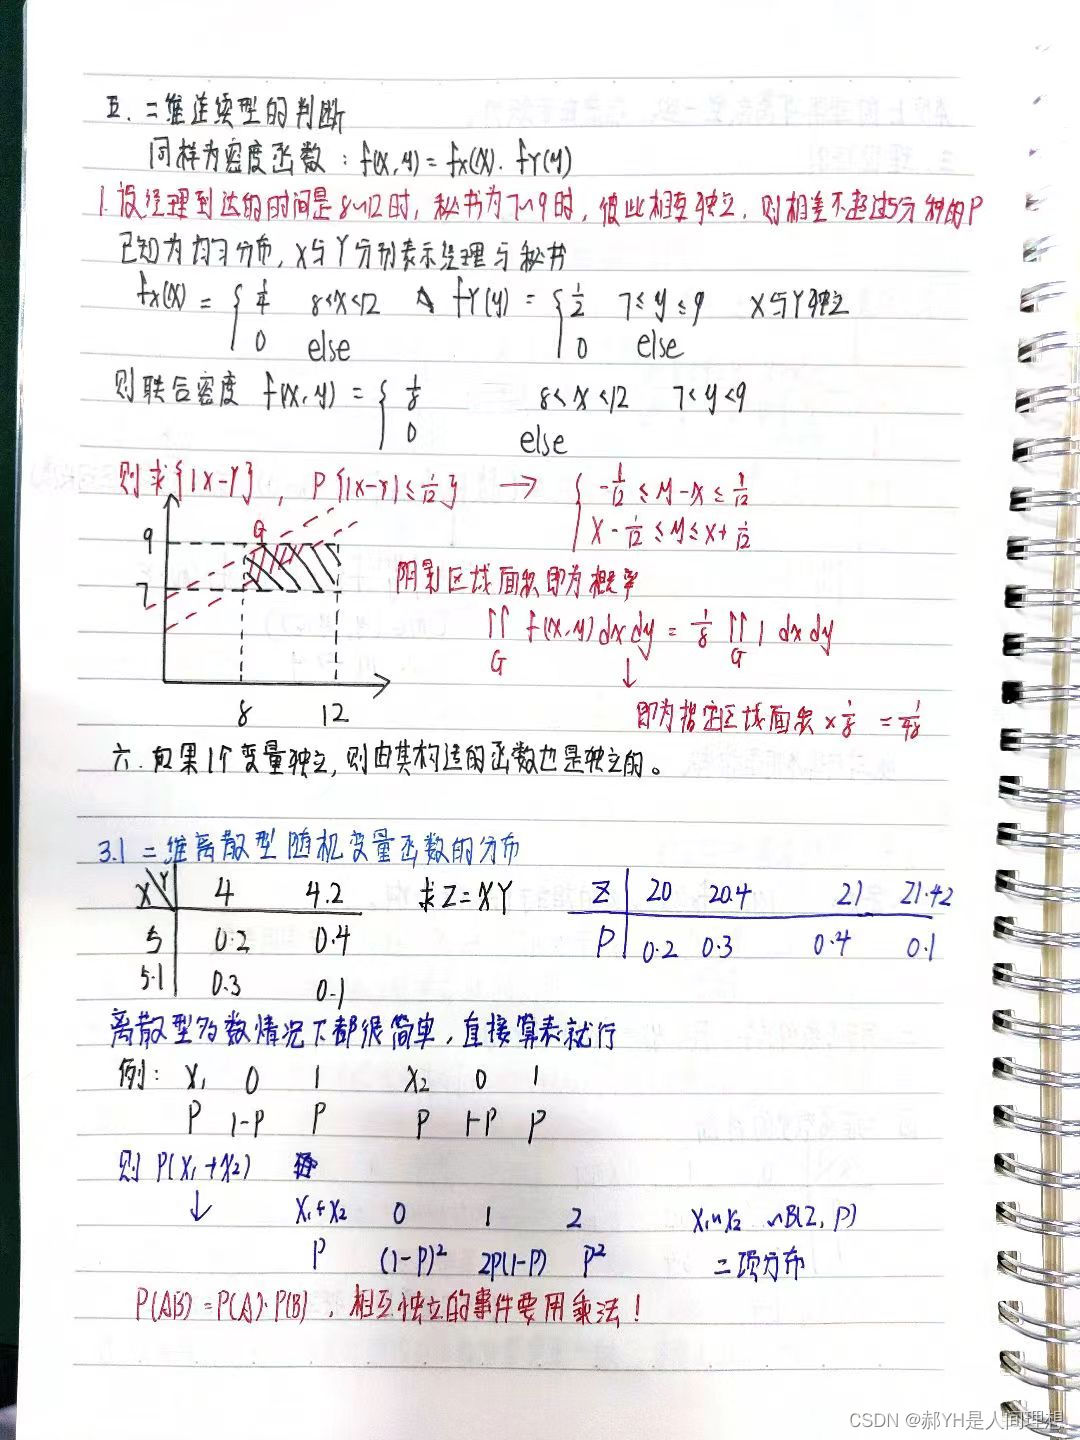 五. 二维连续型的判断
同样为密度函数: f(x,y) = fx(x). fY(y)
1. 设经理到达的时间是8~12时, 秘书为7~9时, 彼此相互独立, 则相差不超过5分钟的P
已知为均匀分布, X与Y分别表示经理与秘书
fx(x) = { 1/4 8<x<12 fY(y) = { 1/2 7≤y≤9 X与Y独立
0 else 0 else
则联合密度 f(x,y) = { 1/8 8<x<12 7<y<9
0 else
则求{|X-Y|}, P{|X-Y|≤1/12} → { -1/12 ≤ y-x ≤ 1/12
x-1/12 ≤ y ≤ x+1/12
9 G
7
阴影区域面积即为概率
∬ f(x,y)dxdy = 1/8 ∬ 1 dxdy
G G
↓
8 12
即为指定区域面积 × 1/8 = 1/48
六. 如果1个变量独立, 则由其构造的函数也是独立的。
3.1 二维离散型随机变量函数的分布
X\Y 4 4.2 求Z=XY Z 20 20.4 21 21.42
5 0.2 0.4 P 0.2 0.3 0.4 0.1
5.1 0.3 0.1
离散型多数情况下都很简单, 直接算表就行
例: X₁ 0 1 X₂ 0 1
P 1-P P P 1-P P
则 P(X₁+X₂)
↓
X₁+X₂ 0 1 2 X₁~X₂ ~B(2, P)
P (1-P)² 2P(1-P) P² 二项分布
P(AB) = P(A)·P(B), 相互独立的事件要用乘法!
CSDN @郝YH是人间理想